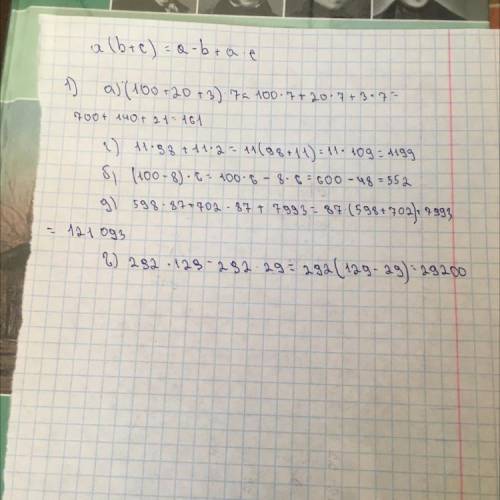 a(b+c) = a·b+a·c
1) а) (100+20+3)·7=100·7+20·7+3·7=
700+140+21=161
г) 11·98+11·2=11(98+11)=11·109=1199
б) (100-8)·6=100·6-8·6=600-48=552
д) 598·87+702·87+7993=87·(598+702)+7993
= 121 093
в) 292·129-292·29=292(129-29)=29200